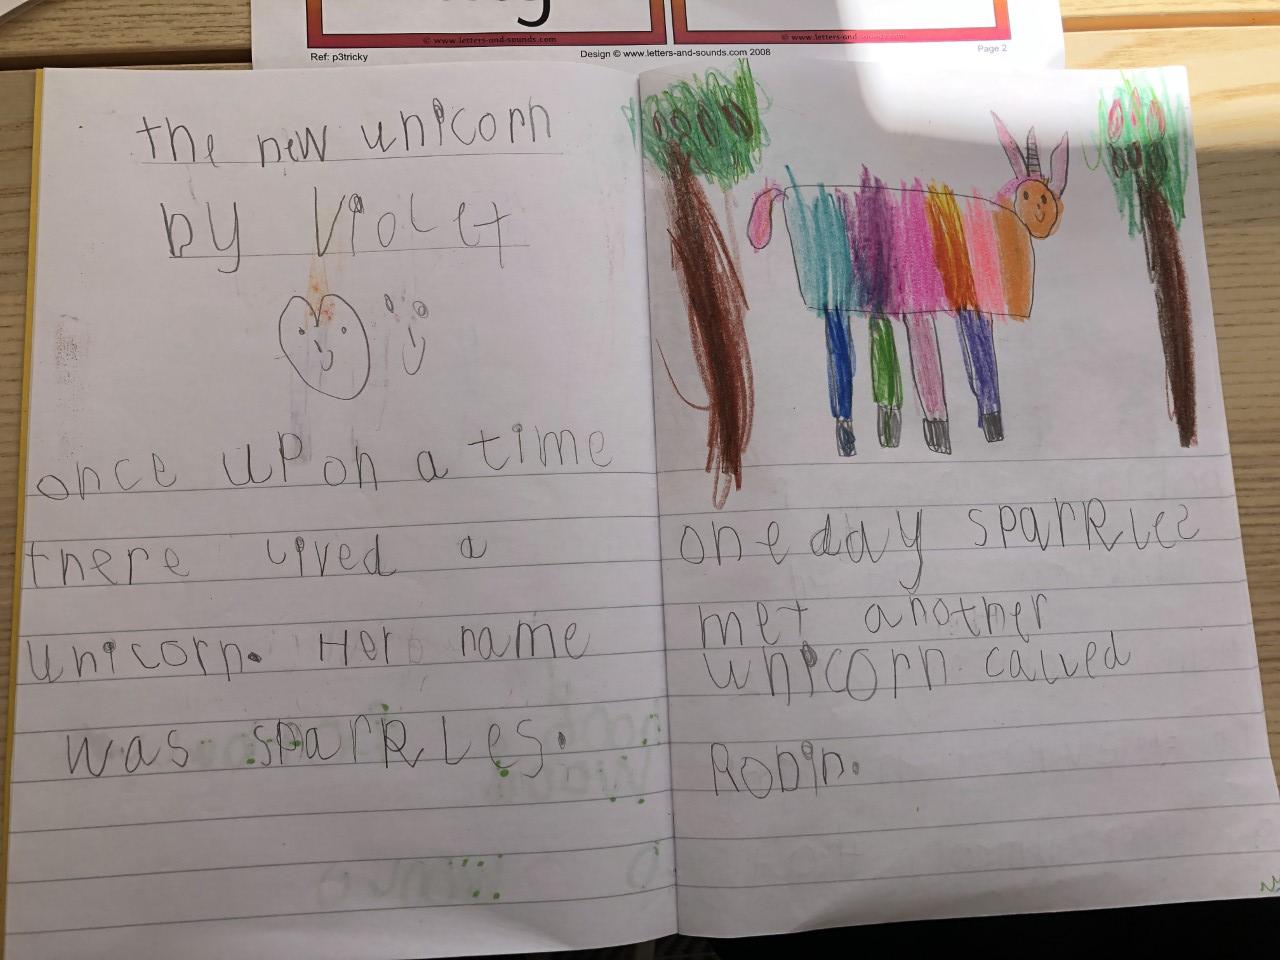 © www.letters-and-sounds.com
© www.letters-and-sounds.com
Ref: p3tricky
Design © www.letters-and-sounds.com 2008
Page 2
the new unicorn
by Violet
once upon a time
there lived a
unicorn. Her name
was sparkles.
one day sparkles
met another
unicorn called
Robin.